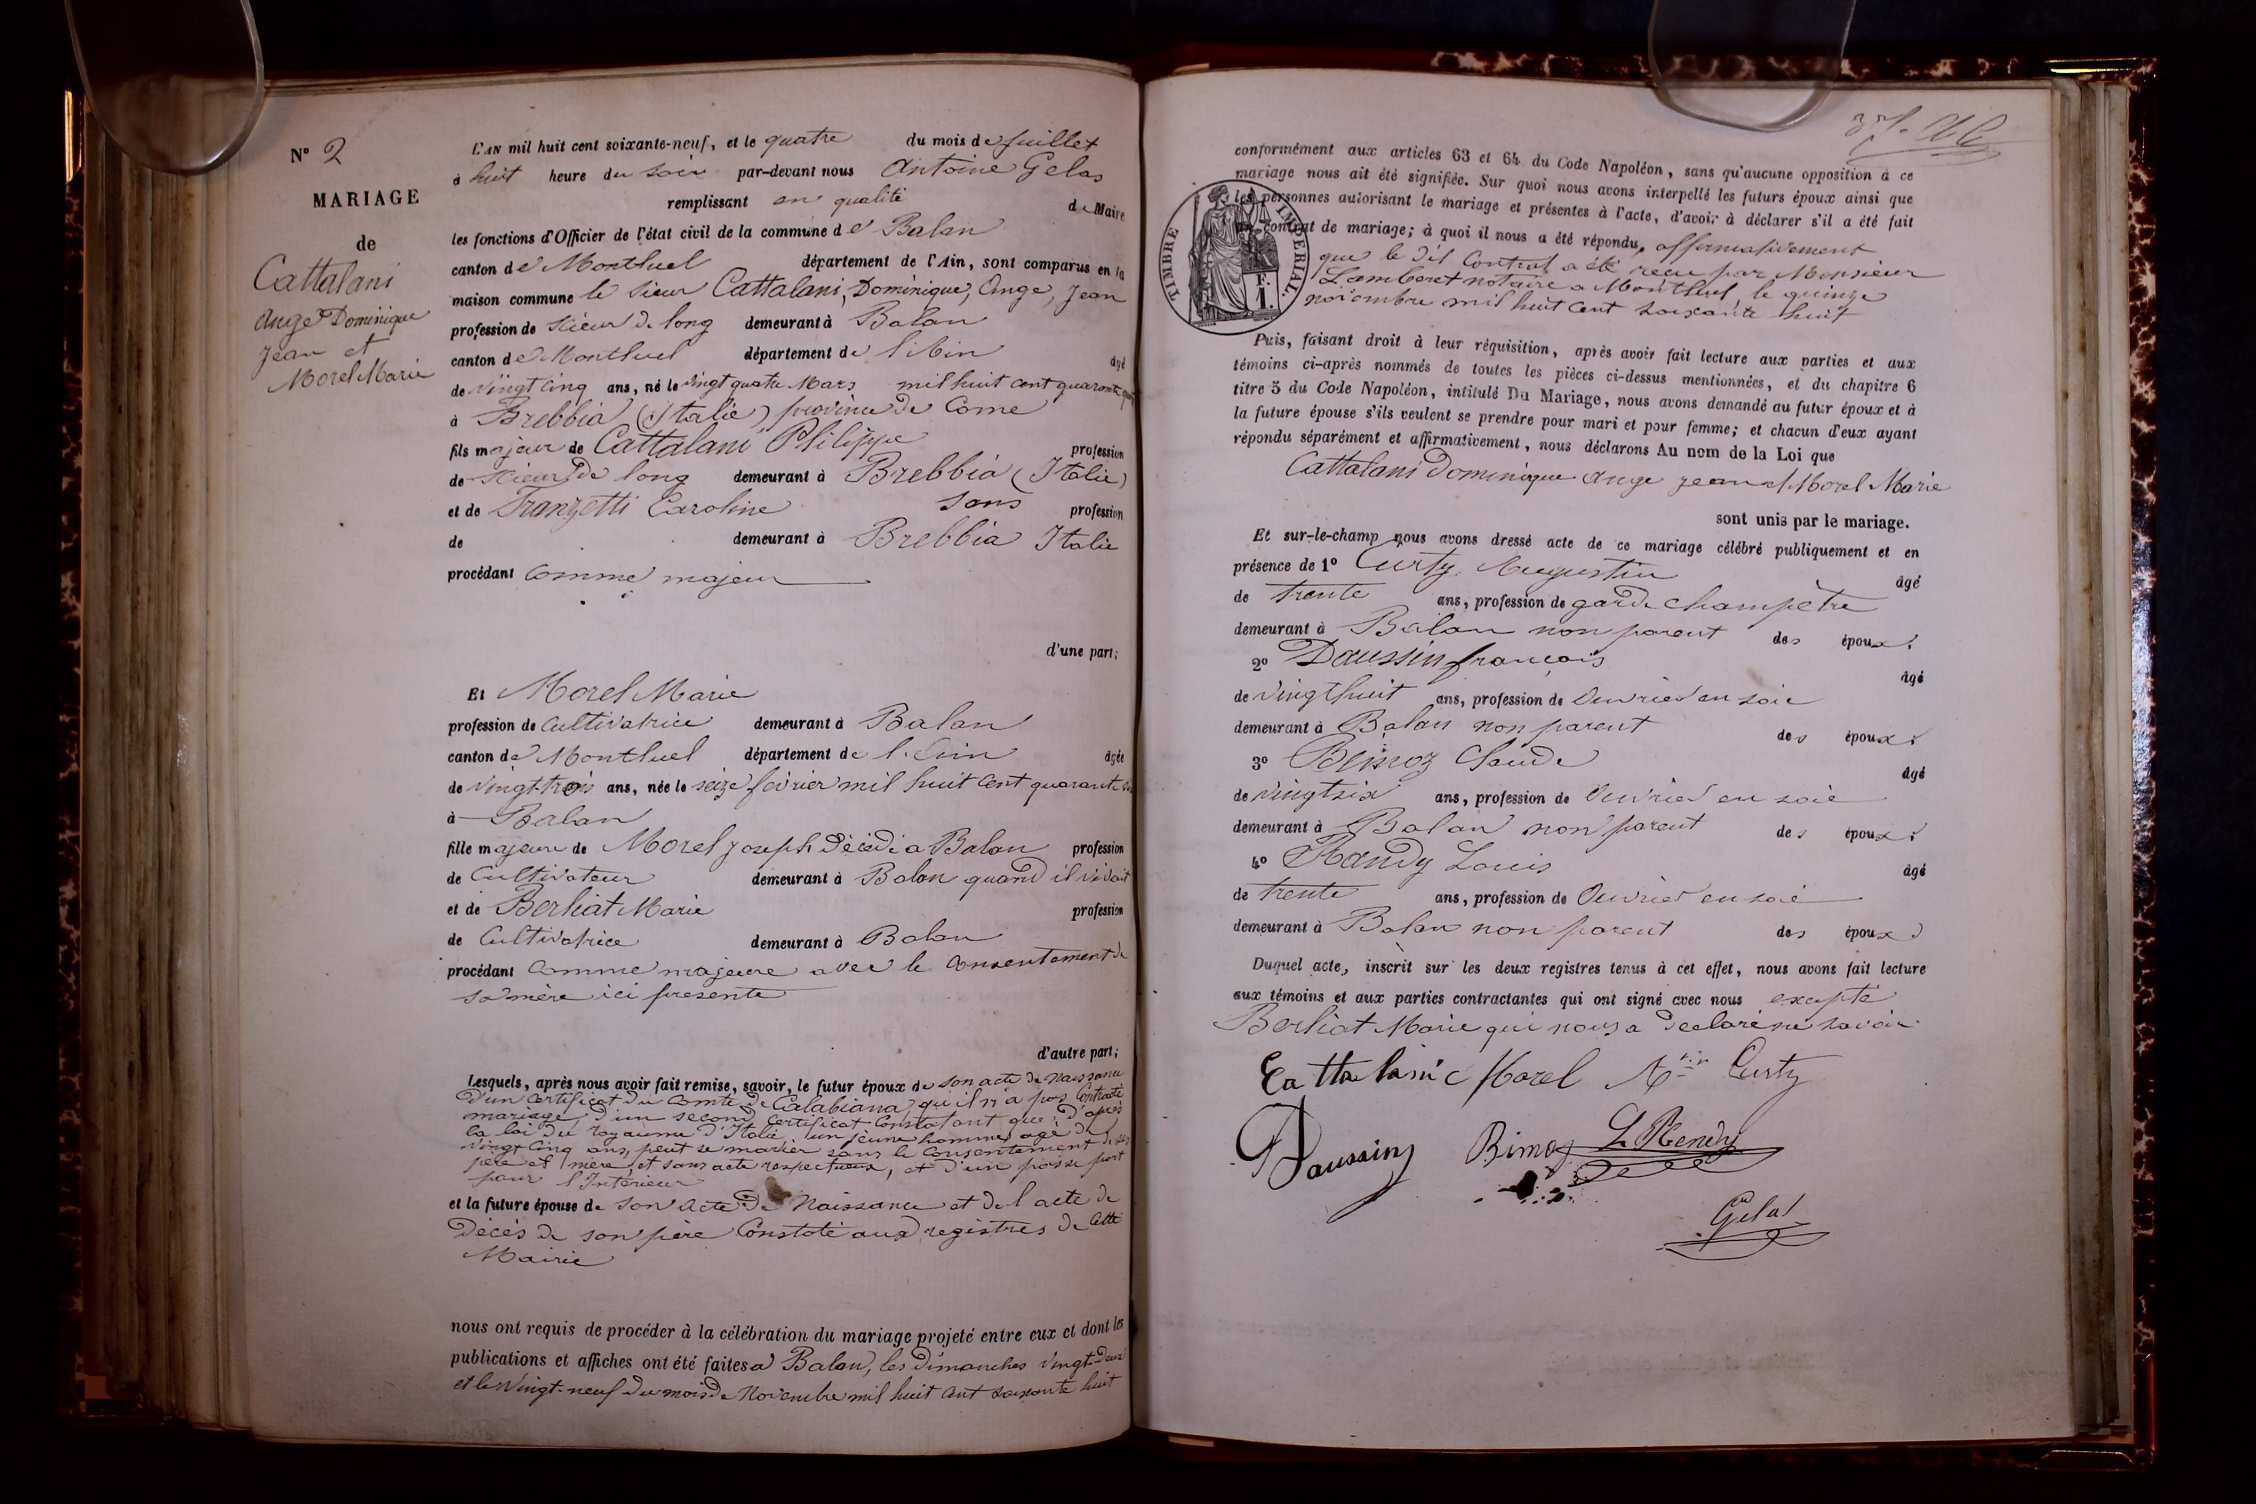 N° 2
MARIAGE
de
Cattalani
Ange Dominique
Jean et
Morel Marie
L'AN mil huit cent soixante-neuf, et le quatre du mois de Juillet
à huit heure du soir par-devant nous Antoine Gelas
remplissant en qualité de Maire
les fonctions d'Officier de l'état civil de la commune de Balan
canton de Montluel département de l'Ain, sont comparus en la
maison commune le sieur Cattalani, Dominique, Ange, Jean
profession de scieur de long demeurant à Balan
canton de Montluel département de l'Ain âgé
de vingt cinq ans, né le vingt quatre Mars mil huit cent quarante
à Brebbia (Italie) province de Come
fils majeur de Cattalani Philippe profession
de scieur de long demeurant à Brebbia (Italie)
et de Franzetti Caroline sans profession
de demeurant à Brebbia Italie
procédant comme majeur
d'une part;
Et Morel Marie
profession de cultivatrice demeurant à Balan
canton de Montluel département de l'Ain âgée
de vingt-trois ans, née le seize février mil huit cent quarante six
à Balan
fille majeure de Morel Joseph décédé a Balan profession
de cultivateur demeurant à Balan quand il vivait
et de Berliat Marie profession
de cultivatrice demeurant à Balan
procédant comme majeure avec le consentement de
sa mère ici presente
d'autre part;
Lesquels, après nous avoir fait remise, savoir, le futur époux de son acte de naissance
d'un certificat du Comte de Calabiana, qu'il n'a pas contracté
mariage, d'un second certificat constatant que d'après
la loi du royaume d'Italie, un jeune homme agé de
vingt cinq ans, peut se marier sans le consentement de ses
père et mère et sans acte respectueux, et d'un passe port
pour l'Intérieur
et la future épouse de son acte de naissance et de l'acte de
décès de son père constaté aux registres de cette
Mairie
nous ont requis de procéder à la célébration du mariage projeté entre eux et dont les
publications et affiches ont été faites a Balan, les dimanches vingt-deux
et le vingt-neuf du mois de Novembre mil huit cent soixante huit
conformément aux articles 63 et 64 du Code Napoléon, sans qu'aucune opposition à ce
mariage nous ait été signifiée. Sur quoi nous avons interpellé les futurs époux ainsi que
les personnes autorisant le mariage et présentes à l'acte, d'avoir à déclarer s'il a été fait
un contrat de mariage; à quoi il nous a été répondu, affirmativement
que le dit Contrat a été recu par Monsieur
Lamberet notaire a Montluel, le quinze
novembre mil huit cent soixante huit
TIMBRE IMPERIAL.
F.
1.
Puis, faisant droit à leur réquisition, après avoir fait lecture aux parties et aux
témoins ci-après nommés de toutes les pièces ci-dessus mentionnées, et du chapitre 6
titre 5 du Code Napoléon, intitulé Du Mariage, nous avons demandé au futur époux et à
la future épouse s'ils veulent se prendre pour mari et pour femme; et chacun d'eux ayant
répondu séparément et affirmativement, nous déclarons Au nom de la Loi que
Cattalani Dominique Ange Jean et Morel Marie
sont unis par le mariage.
Et sur-le-champ nous avons dressé acte de ce mariage célébré publiquement et en
présence de 1° Curty Augustin âgé
de trente ans, profession de garde champêtre
demeurant à Balan non parent des époux.
2° Daussin françois âgé
de vingt huit ans, profession de ouvrier en soie
demeurant à Balan non parent des époux.
3° Claude âgé
de vingt six ans, profession de ouvrier en soie
demeurant à Balan non parent des époux.
4° Louis âgé
de trente ans, profession de ouvrier en soie
demeurant à Balan non parent des époux
Duquel acte, inscrit sur les deux registres tenus à cet effet, nous avons fait lecture
aux témoins et aux parties contractantes qui ont signé avec nous excepté
Berliat Marie qui nous a declaré ne savoir
Cattalani Morel Curty
Daussin
Gelas